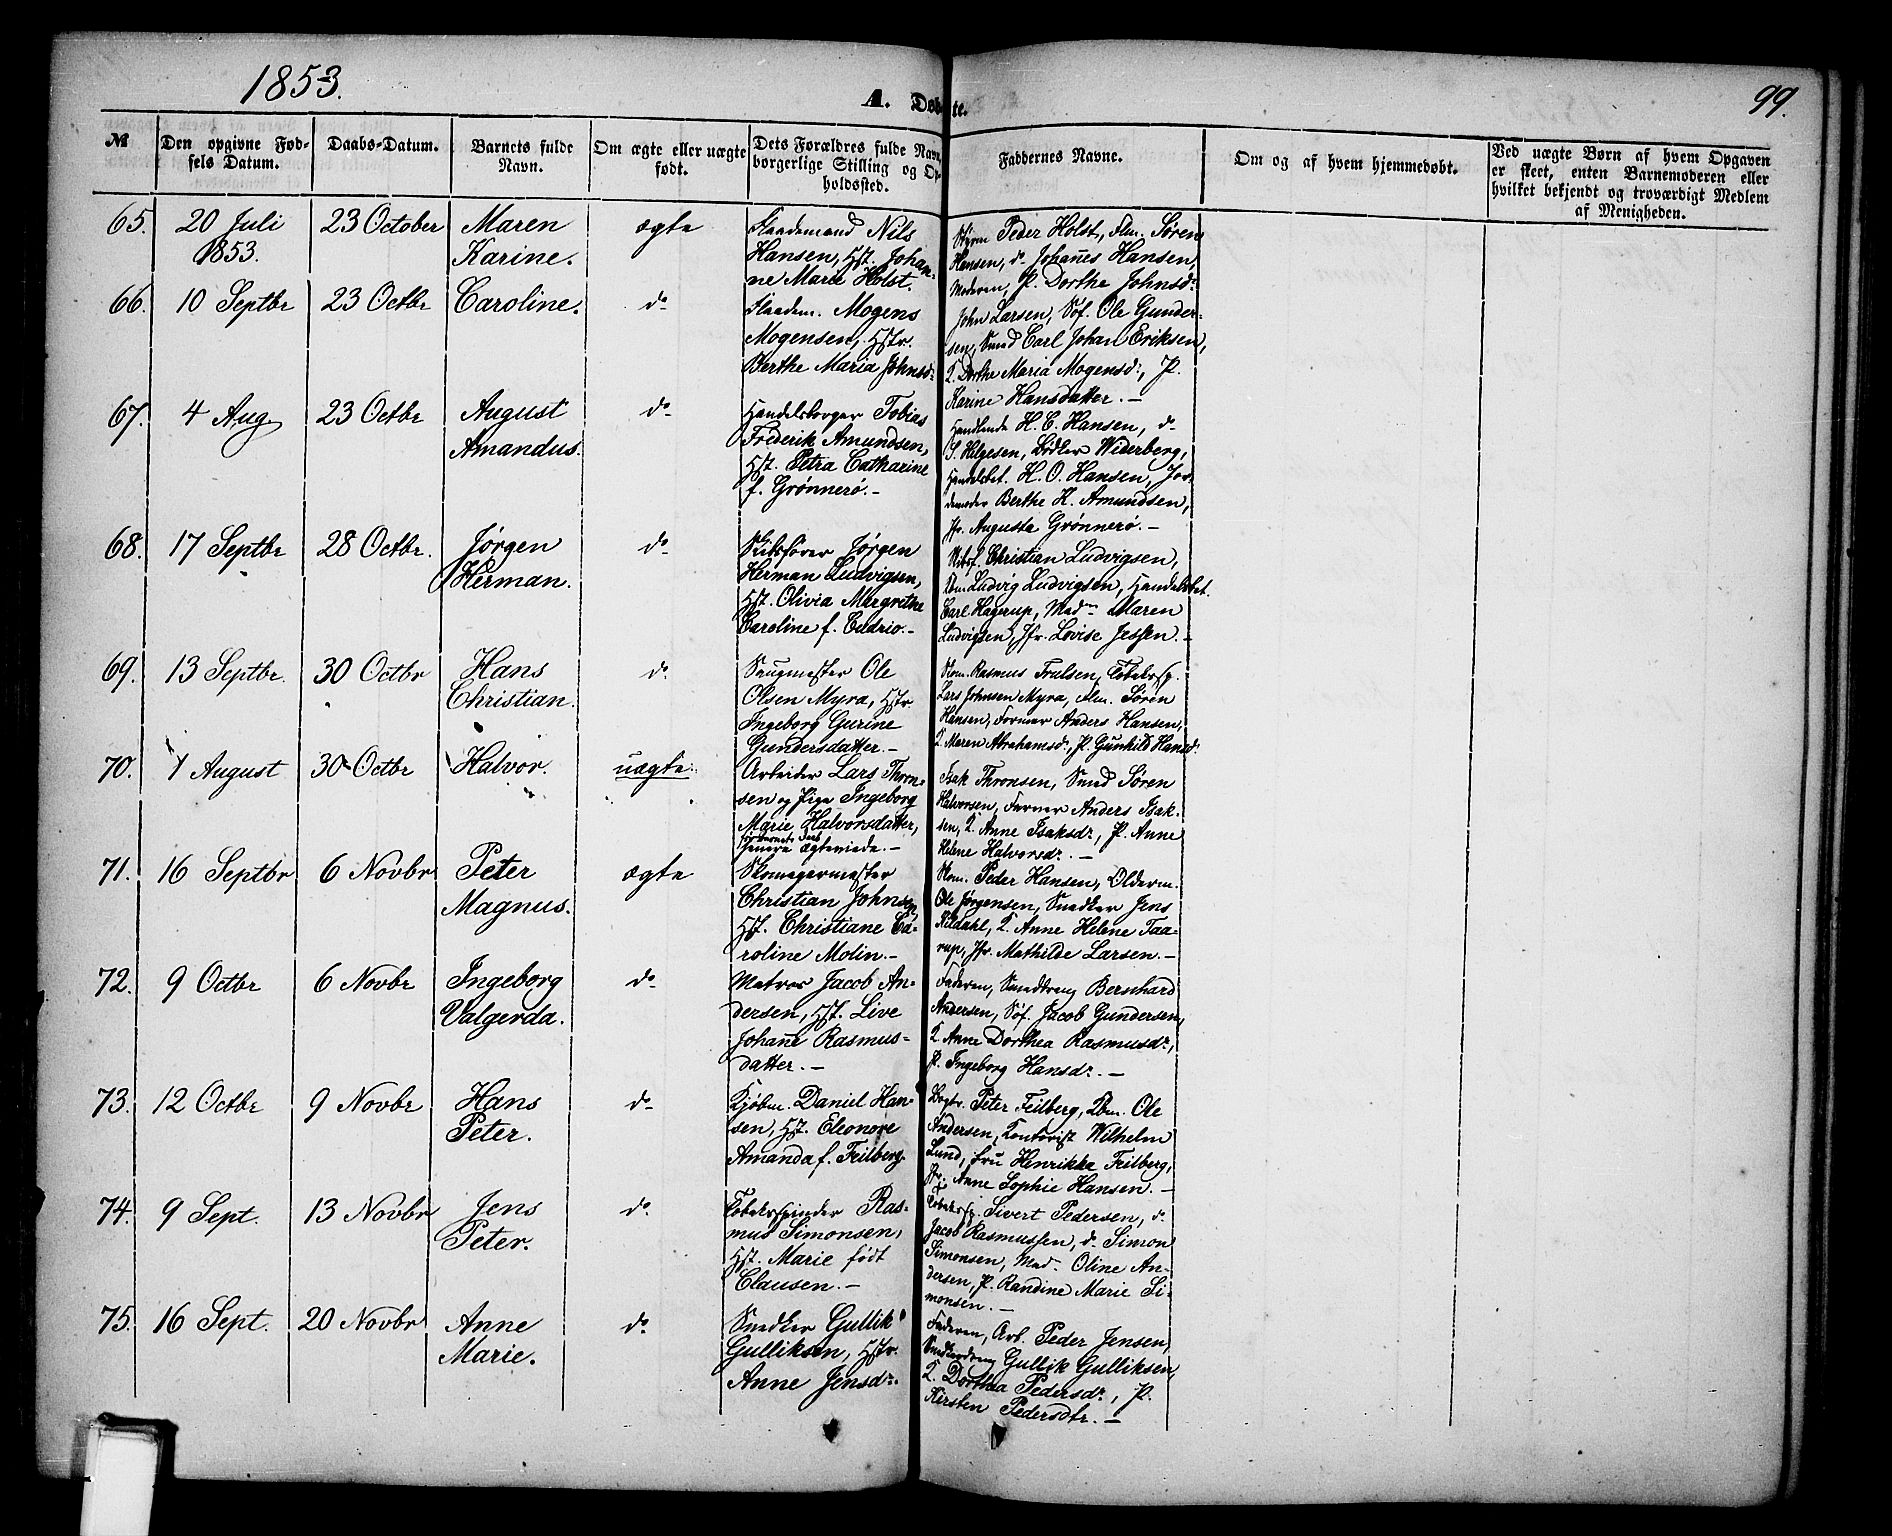 1853.
A. Døbte.
99.
№
Den opgivne Fød-
sels Datum.
Daabs-Datum.
Barnets fulde
Navn.
Om ægte eller uægte
født.
Dets Forældres fulde Navn,
borgerlige Stilling og Op-
holdssted.
Faddernes Navne.
Om og af hvem hjemmedøbt.
Ved uægte Børn af hvem Opgaven
er skeet, enten Barnemoderen eller
hvilket bekjendt og troværdigt Medlem
af Menigheden.
65.
20 Juli
1853.
23 October
Maren
Karine.
ægte
Nils
Hansen, Hst. Johan-
ne Marie Holst.
Styrm Peder Holst, Flm. Søren
Hansen, do Johañes Hansen,
Moderen, P. Dorthe Johnsdr
66.
10 Septbr
23 Octbr
Caroline.
do
Mogens
Mogensen, Hstr.
Berthe Maria Johnsd.
John Larsen, Søf. Ole Gunder-
sen, Smed Carl Johan Eriksen,
K. Dorthe Maria Mogensd., P.
Karine Hansdatter. –
67.
4 Aug
23 Octbr
August
Amandus.
do
Handelsborger Tobias
Frederik Amundsen,
Hst. Petra Catharine
f. Grønnerø. –
Handlende H. C. Hansen, do
S. Helgesen, Bødker Widerberg,
Handelsbet. H. O. Hansen, Jor-
demoder Berthe K. Amundsen,
Jfr. Augusta Grønnerø. –
68.
17 Septbr
28 Octbr.
Jørgen
Herman.
do
Skibsfører Jørgen
Herman Ludvigsen,
Hst. Olivia Margrethe
Caroline f. Cudrio. –
Skibsf. Christian Ludvigsen,
Skm Ludvig Ludvigsen, Handelsbet.
Carl Hagerup, Madm Maren
Ludvigsen, Jfr. Lovise Jessen. –
69.
13 Septbr.
30 Octbr
Hans
Christian.
do
Saugmester Ole
Olsen Myra, Hstr
Ingeborg Gurine
Gundersdatter. –
Skom. Rasmus Trulsen, Tobaksp.
Lars Johnsen Myra, Flm. Søren
Hansen, Former Anders Hansen,
K. Maren Abrahamsd., P. Gunhild Hansd.
70.
1 August
30 Octbr
Halvor.
uægte.
Arbeider Lars Thron-
sen og Pige Ingeborg
Marie Halvorsdatter,
før Barnets Daab
senere ægteviede. –
Isak Thronsen, Smed Søren
Halvorsen, Former Anders Isak-
sen, K. Anne Isaksdr, P. Anne
Helene Halvorsdr. –
71.
16 Septbr
6 Novbr
Peter
Magnus.
ægte
Skomagermester
Christian Johnsen,
Hst. Christiane Ca-
roline Molin. –
Skom. Peder Hansen, Olderm.
Ole Jørgensen, Snedker Jens
Kildahl, K. Anne Helene Taa-
rup, Jfr. Mathilde Larsen. –
72.
9 Octbr
6 Novbr
Ingeborg
Valgerda.
do
Matros Jacob An-
dersen, Hst. Live
Johañe Rasmus-
datter. –
Faderen, Smeddreng Bernhard
Andersen, Søf. Jacob Gundersen,
K. Anne Dorthea Rasmusdr,
P. Ingeborg Hansdr. –
73.
12 Octbr
9 Novbr
Hans
Peter.
do
Kjøbm. Daniel Han-
sen, Hst. Eleonore
Amanda f. Feilberg.
Peter Feilberg, Kbm. Ole
Andersen, Kontorist Wilhelm
Lund, Fru Henrikke Feilberg,
Jfr. Anne Sophie Hansen. –
74.
9 Sept.
13 Novbr
Jens
Peter.
do
Tobakspinder Ras-
mus Simonsen,
Hst. Marie født
Clausen. –
Tobaksp. Sivert Pedersen, do
Jacob Rasmussen, do Simon
Simonsen, Mad. Oline An-
dersen, P. Randine Marie Si-
monsen. –
75.
16 Sept.
20 Novbr
Anne
Marie.
do
Snedker Gullik
Gulliksen, Hstr.
Anne Jensdr.
Faderen, Arb. Peder Jensen,
Snedkerdreng Gullik Gulliksen,
K. Dorthea Pedersdr, P.
Kirsten Pedersdtr. –